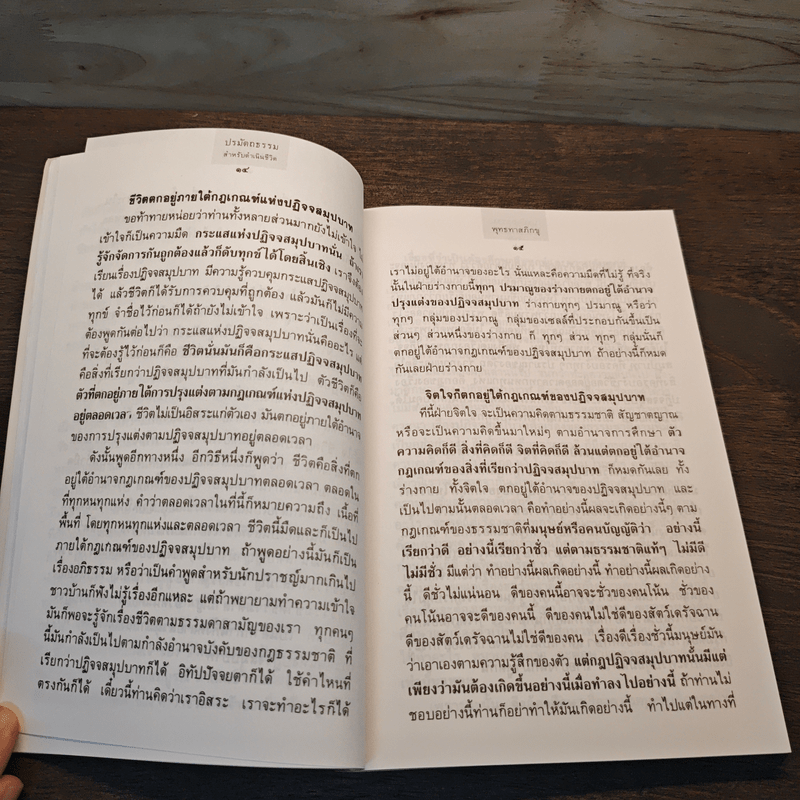 ปรมัตถธรรม
สำหรับดำเนินชีวิต
๑๔
ชีวิตตกอยู่ภายใต้กฎเกณฑ์แห่งปฏิจจสมุปบาท
ขอท้าทายหน่อยว่าท่านทั้งหลายส่วนมากยังไม่เข้าใจ
เข้าใจก็เป็นความมืด กระแสแห่งปฏิจจสมุปบาทนั่น
รู้จักจัดการกันถูกต้องแล้วก็ดับทุกข์ได้โดยสิ้นเชิง เราจึงต้อง
เรียนเรื่องปฏิจจสมุปบาท มีความรู้ควบคุมกระแสปฏิจจสมุปบาท
ได้ แล้วชีวิตก็ได้รับการควบคุมที่ถูกต้อง แล้วมันก็ไม่มีความ
ทุกข์ จำชื่อไว้ก่อนก็ได้ถ้ายังไม่เข้าใจ เพราะว่าเป็นเรื่องที่จะ
ต้องพูดกันต่อไปว่า กระแสแห่งปฏิจจสมุปบาทนั้นคืออะไร แต่
ที่จะต้องรู้ไว้ก่อนก็คือ ชีวิตนั่นมันก็คือกระแสปฏิจจสมุปบาท
คือสิ่งที่เรียกว่าปฏิจจสมุปบาทที่มันกำลังเป็นไป ตัวชีวิตก็คือ
ตัวที่ตกอยู่ภายใต้การปรุงแต่งตามกฎเกณฑ์แห่งปฏิจจสมุปบาท
อยู่ตลอดเวลา ชีวิตไม่เป็นอิสระแก่ตัวเอง มันตกอยู่ภายใต้อำนาจ
ของการปรุงแต่งตามปฏิจจสมุปบาทอยู่ตลอดเวลา
ดังนั้นพูดอีกทางหนึ่ง อีกวิธีหนึ่งก็พูดว่า ชีวิตคือสิ่งที่ตก
อยู่ใต้อำนาจกฎเกณฑ์ของปฏิจจสมุปบาทตลอดเวลา ตลอดใน
ที่ทุกหนทุกแห่ง คำว่าตลอดเวลาในที่นี้ก็หมายความถึง เนื้อที่
พื้นที่ โดยทุกหนทุกแห่งและตลอดเวลา ชีวิตนี้มืดและก็เป็นไป
ภายใต้กฎเกณฑ์ของปฏิจจสมุปบาท ถ้าพูดอย่างนี้มันก็เป็น
เรื่องอภิธรรม หรือว่าเป็นคำพูดสำหรับนักปราชญ์มากเกินไป
ชาวบ้านก็ฟังไม่รู้เรื่องอีกแหละ แต่ถ้าพยายามทำความเข้าใจ
มันก็พอจะรู้จักเรื่องชีวิตตามธรรมดาสามัญของเรา ทุกคนๆ
นี้มันกำลังเป็นไปตามกำลังอำนาจบังคับของกฎธรรมชาติ ที่
เรียกว่าปฏิจจสมุปบาทก็ได้ อิทัปปัจจยตาก็ได้ ใช้คำไหนก็
ตรงกันก็ได้ เดี๋ยวนี้ท่านคิดว่าเราอิสระ เราจะทำอะไรก็ได้
พุทธทาสภิกขุ
๑๕
เราไม่อยู่ใต้อำนาจของอะไร นั่นแหละคือความมืดที่ไม่รู้ ที่จริง
นั้นในฝ่ายร่างกายนี้ทุกๆ ปรมาณูของร่างกายตกอยู่ใต้อำนาจ
ปรุงแต่งของปฏิจจสมุปบาท ร่างกายทุกๆ ปรมาณู หรือว่า
ทุกๆ กลุ่มของปรมาณู กลุ่มของเซลล์ที่ประกอบกันขึ้นเป็น
ส่วนๆ ส่วนหนึ่งของร่างกาย ก็ ทุกๆ ส่วน ทุกๆ กลุ่มนั้นก็
ตกอยู่ใต้อำนาจกฎเกณฑ์ของปฏิจจสมุปบาท ถ้าอย่างนี้ก็หมด
กันเลยฝ่ายร่างกาย
จิตใจก็ตกอยู่ใต้กฎเกณฑ์ของปฏิจจสมุปบาท
ที่นี้ฝ่ายจิตใจ จะเป็นความคิดตามธรรมชาติ สัญชาตญาณ
หรือจะเป็นความคิดขึ้นมาใหม่ๆ ตามอำนาจการศึกษา ตัว
ความคิดก็ดี สิ่งที่คิดก็ดี จิตที่คิดก็ดี ล้วนแต่ตกอยู่ใต้อำนาจ
กฎเกณฑ์ของสิ่งที่เรียกว่าปฏิจจสมุปบาท ก็หมดกันเลย ทั้ง
ร่างกาย ทั้งจิตใจ ตกอยู่ใต้อำนาจของปฏิจจสมุปบาท และ
เป็นไปตามนั้นตลอดเวลา คือทำอย่างนี้ผลจะเกิดอย่างนี้ๆ ตาม
กฎเกณฑ์ของธรรมชาติที่มนุษย์หรือคนบัญญัติว่า อย่างนี้
เรียกว่าดี อย่างนี้เรียกว่าชั่ว แต่ตามธรรมชาติแท้ๆ ไม่มีดี
ไม่มีชั่ว มีแต่ว่า ทำอย่างนี้ผลเกิดอย่างนี้ ทำอย่างนี้ผลเกิดอย่าง
นี้ ดีชั่วไม่แน่นอน ดีของคนนี้อาจจะชั่วของคนโน้น ชั่วของ
คนโน้นอาจจะดีของคนนี้ ดีของคนไม่ใช่ดีของสัตว์เดรัจฉาน
ดีของสัตว์เดรัจฉานไม่ใช่ดีของคน เรื่องดีเรื่องชั่วนี้มนุษย์มัน
ว่าเอาเองตามความรู้สึกของตัว แต่กฎปฏิจจสมุปบาทนั้นมีแต่
เพียงว่ามันต้องเกิดขึ้นอย่างนี้เมื่อทำลงไปอย่างนี้ ถ้าท่านไม่
ชอบอย่างนี้ท่านก็อย่าทำให้มันเกิดอย่างนี้ ทำไปแต่ในทางที่